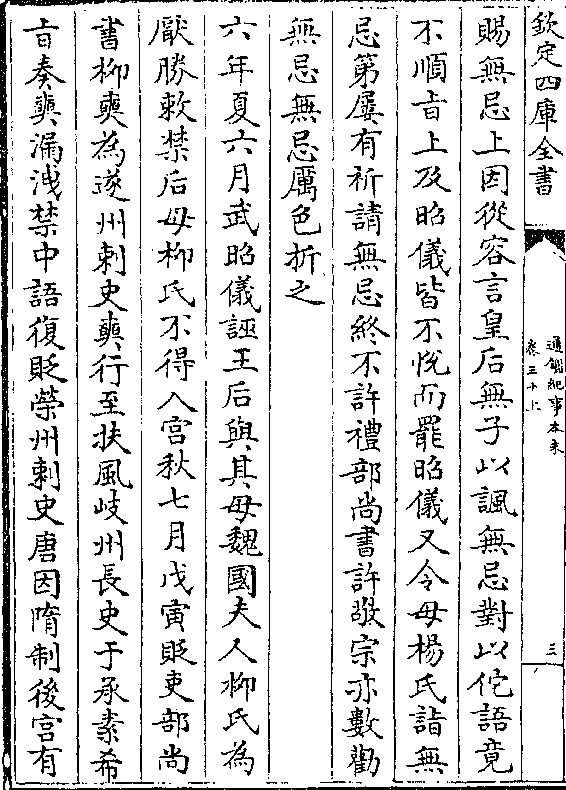 欽定四庫全書
通鑑紀事本末
卷三十上
三
賜無忌上因從容言皇后無子以諷無忌對以佗語竟
不順㫖上及昭儀皆不悦而罷昭儀又令母楊氏詣無
忌第屢有祈請無忌終不許禮部尚書許敬宗亦數勸
無忌無忌厲色折之
六年夏六月武昭儀誣王后與其母魏國夫人柳氏為
厭勝敕禁后母柳氏不得入宫秋七月戊寅貶吏部尚
書柳奭為遂州刺史奭行至扶風岐州長史于承素希
㫖奏奭漏洩禁中語復貶榮州刺史唐因隋制後宫有